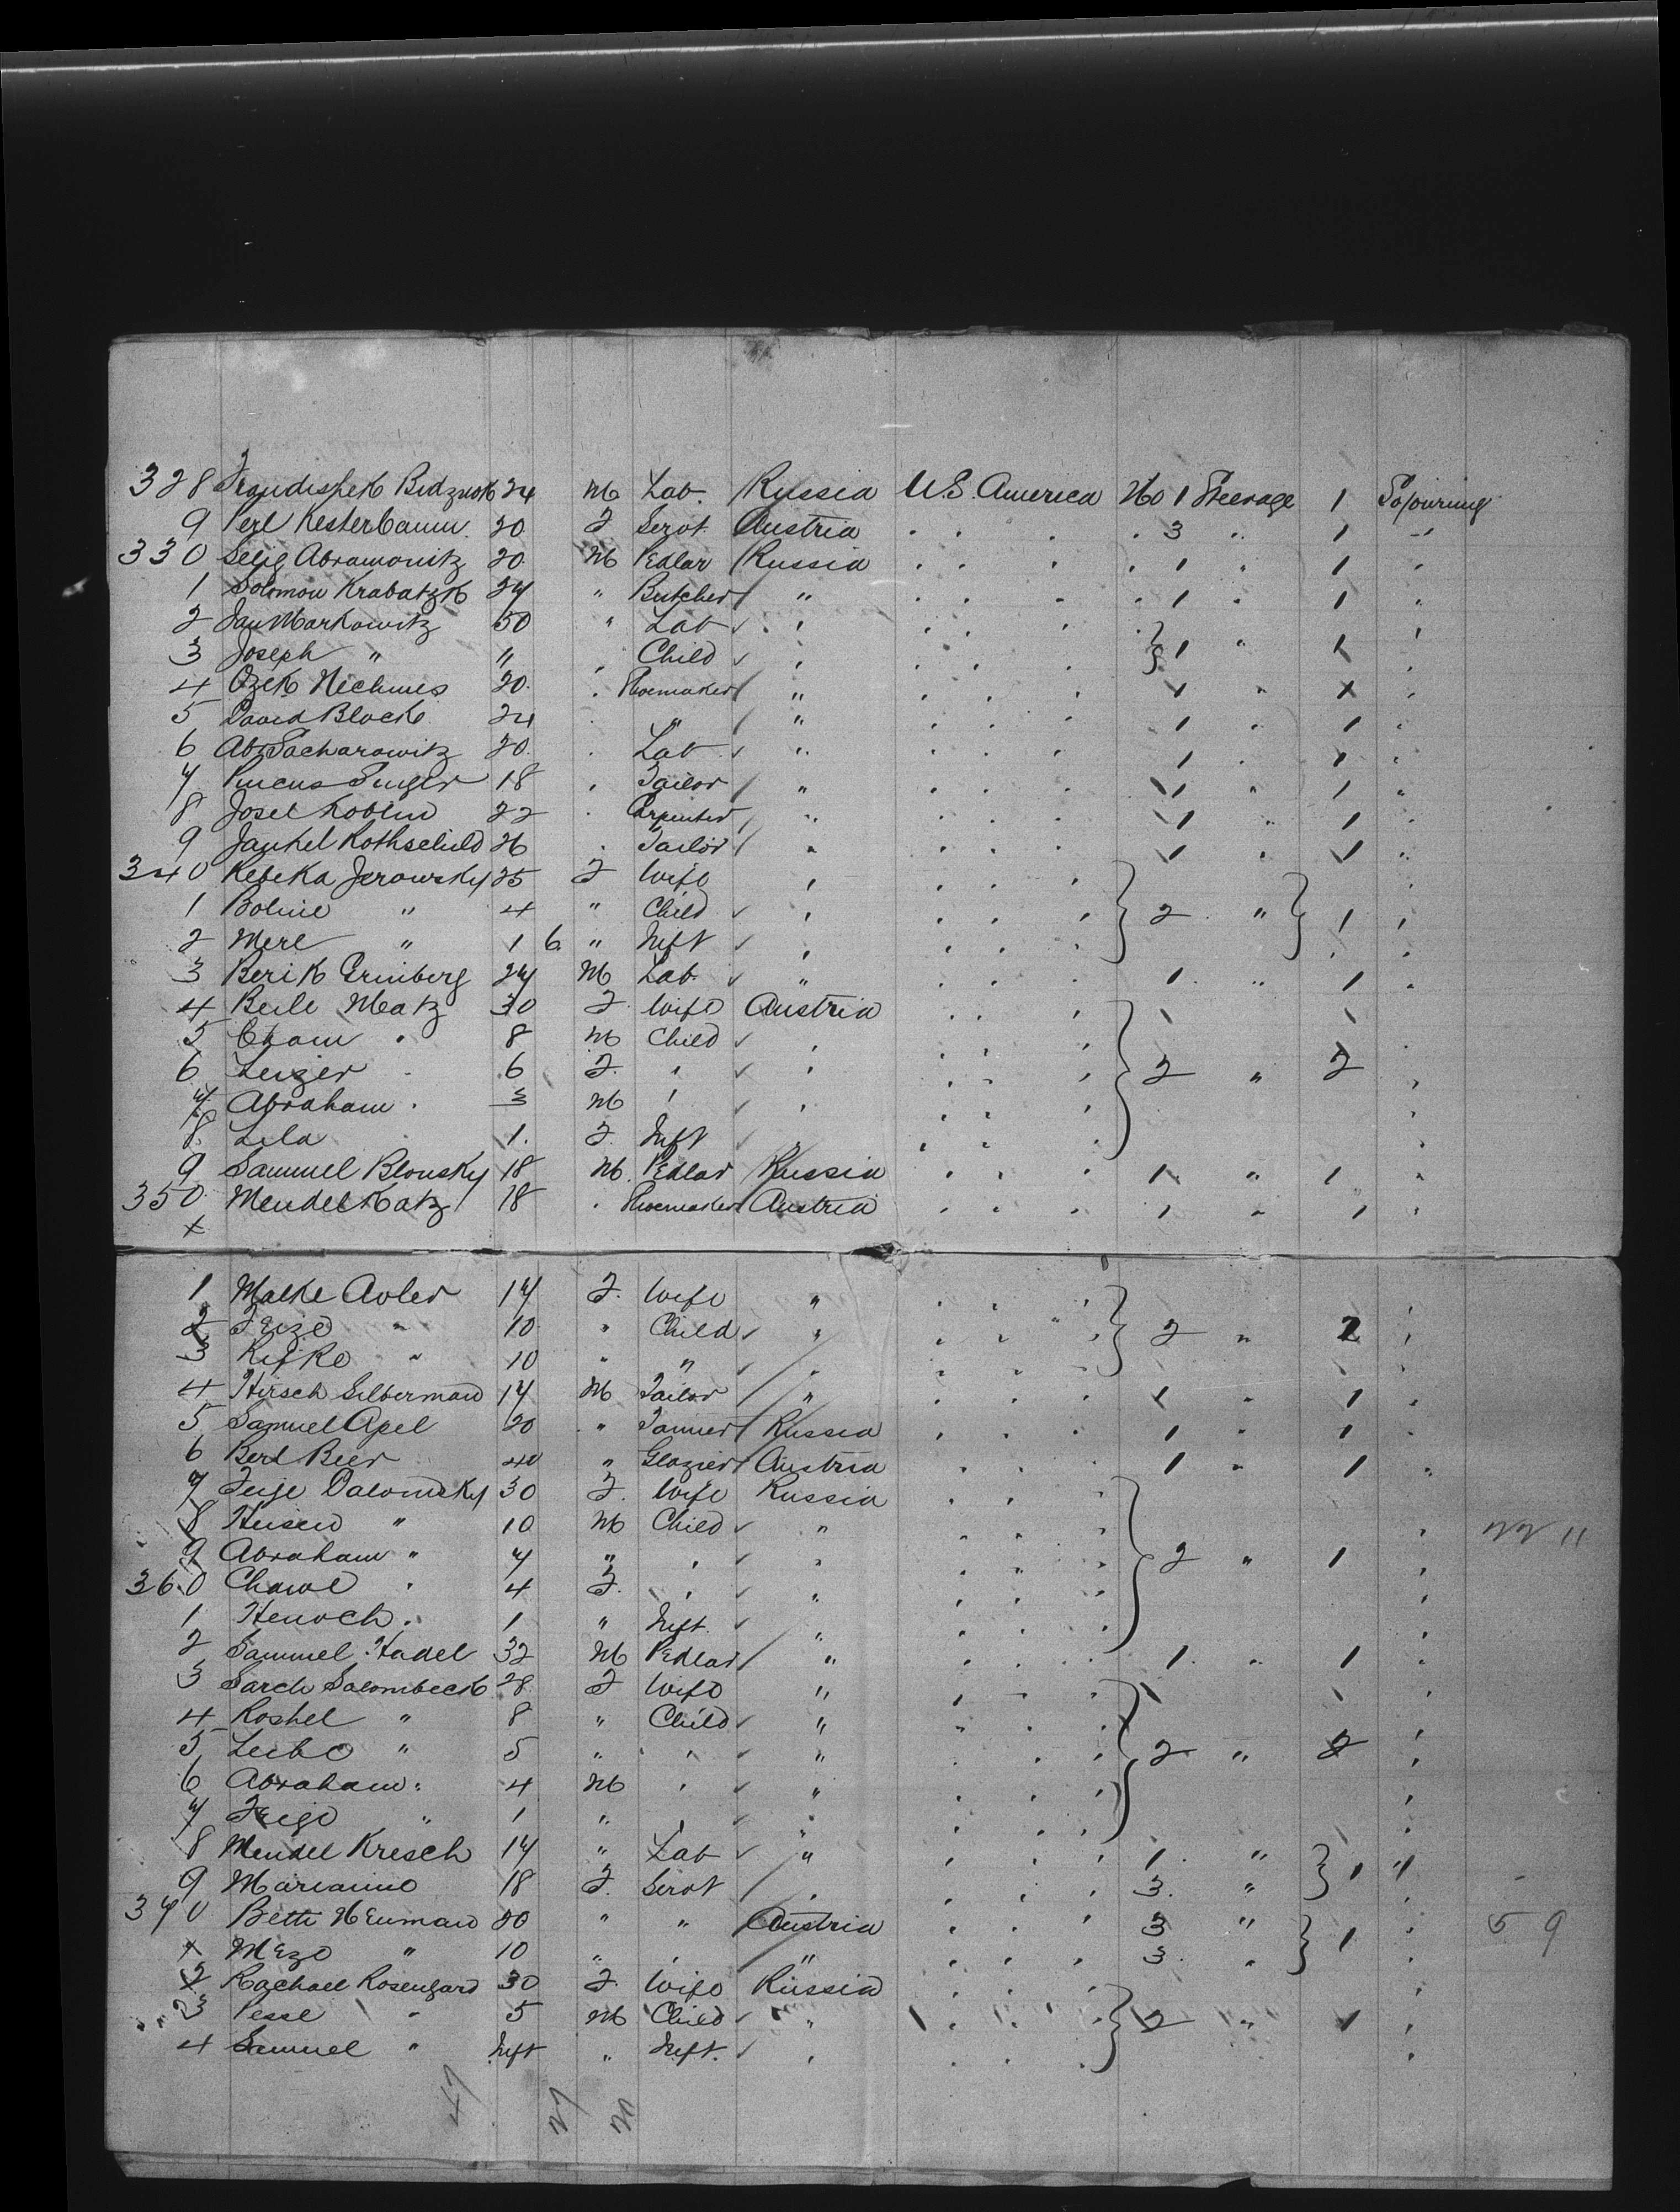 328 Frandishek Bidznok 24 M Lab. Russia U.S. America No 1 Steerage 1 Sojourning
9 Perl Kesterbaum 20 F Servt. Austria . . . . 3 " 1 "
330 Selig Abramowitz 20 M Pedlar Russia . . . . 1 " 1 "
1 Solomon Krabatzk 27 " Butcher " . . . . 1 " 1 "
2 Jan Markowitz 50 " Lab " . . . } 1 " 1 "
3 Joseph " " " Child " . . . "
4 Ozek Nechmes 20 " Shoemaker " . . . 1 " 1 "
5 David Block 24 " " " . . . 1 " 1 "
6 Ab. Sacharowitz 20 " Lab " . . . 1 " 1 "
7 Pincus Singer 18 " Tailor " . . . 1 " 1 "
8 Josel Koblin 22 " Carpenter " . . . 1 " 1 "
9 Jankel Rothschild 26 " Tailor " . . . 1 " 1 "
340 Rebeka Jerowsky 25 F Wife " . . . "
1 Bohne " 4 " Child " . . . } 2 " } 1 "
2 Mere " 1 6 " Inft " . . . "
3 Berik Grinberg 27 M Lab " . . . 1 " 1 "
4 Beile Matz 30 F Wife Austria . . .
5 Cham " 8 M Child " . . . "
6 Leizer " 6 F " " . . . } 2 " 2 "
7 Abraham " 3 M " " . . . "
8 Lila 1 F Inft " . . . "
9 Samuel Blonsky 18 M Pedlar Russia . . . 1 " 1 "
350 Mendel Katz 18 " Shoemaker Austria . . . 1 " 1 "
x
1 Malke Adler 17 F Wife " . . . "
2 Feize " 10 " Child " . . . } 2 " 2 "
3 Rifke " 10 " " " . . . "
4 Hirsch Silberman 17 M Tailor " . . . 1 " 1 "
5 Samuel Apel 20 " Tanner Russia . . . 1 " 1 "
6 Berl Beer 40 " Glazier Austria . . . 1 " 1 "
7 Feige Dalomsky 30 F Wife Russia . .
8 Heisen " 10 M Child " . . . " 11
9 Abraham " 7 " " " . . . } 2 " 1 "
360 Chawe " 4 F " " . . . "
1 Henoch " 1 " Inft " . . . "
2 Samuel Hadel 32 M Pedlar " . . . 1 " 1 "
3 Sarch Salombeck 28 F Wife " . . . "
4 Roshel " 8 " Child " . . . "
5 Leibe " 5 " " " . . . } 2 " 2 "
6 Abraham " 4 M " " . . . "
7 Feige " 1 " " " . . . "
8 Mendel Kresch 17 " Lab " . . . 1 " } 1 "
9 Marianne 18 F Servt " . . . 3 " "
370 Bette Neuman 20 " " Austria . . . 3 " } 1 " 59
1 Meze " 10 " " " . . . 3 " "
2 Rachael Rosengard 30 F Wife Russia . . . "
3 Pesse " 5 M Child " . . . } 2 " 1 "
4 Samuel " Inft " Inft. " . . . "
47 27 20